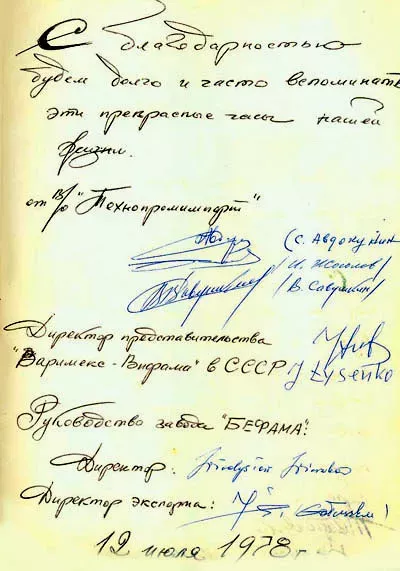 С благодарностью
будем долго и часто вспоминать
эти прекрасные часы нашей
жизни.
от В/О "Технопромимпорт"
(С. Авдокушин
/И. Жоголов/
/В. Савушкин/
Директор представительства
"Варимекс-Вифама" в СССР J Łysenko
Руководство завода "БЕФАМА":
Директор:
Директор экспорта:
12 июля 1978 г